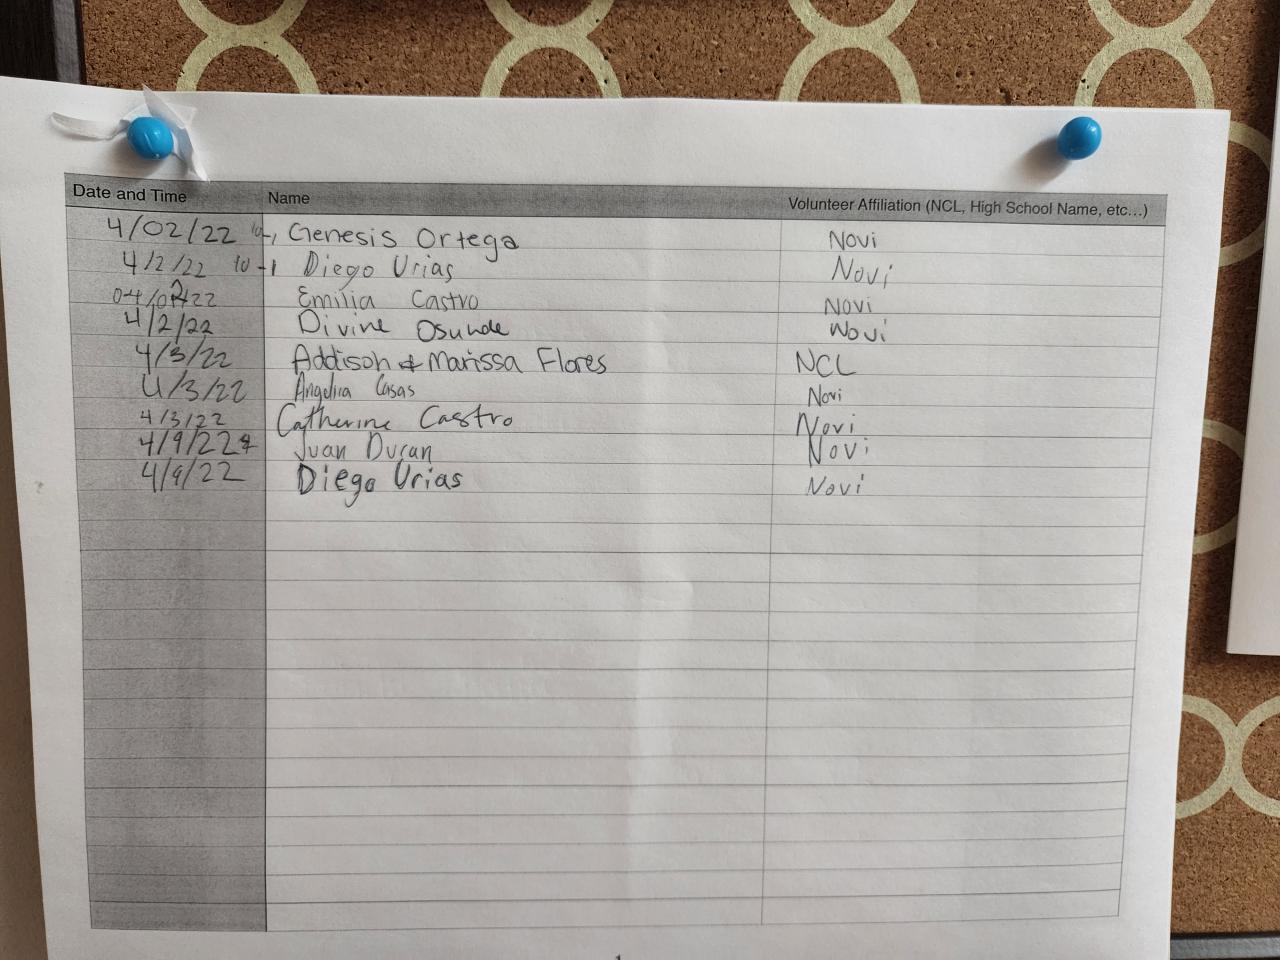 Date and Time Name Volunteer Affiliation (NCL, High School Name, etc...)
4/02/22 10-1 Genesis Ortega Novi
4/2/22 10-1 Diego Urias Novi
04/02/22 Emilia Castro Novi
4/2/22 Divine Osunde Novi
4/3/22 Addison & Marissa Flores NCL
4/3/22 Angelica Casas Novi
4/3/22 Catherine Castro Novi
4/9/22 Juan Duran Novi
4/9/22 Diego Urias Novi